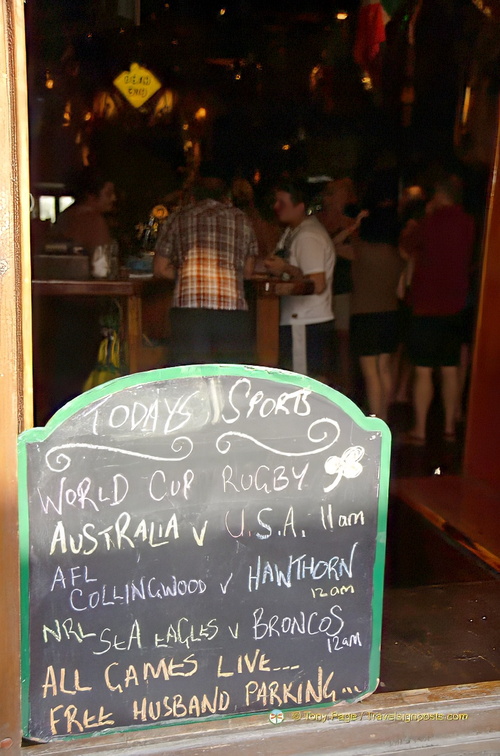 DEAD
END
TODAYS SPORTS
WORLD CUP RUGBY
AUSTRALIA V U.S.A. 11am
AFL
COLLINGWOOD V HAWTHORN
12am
NRL SEA EAGLES V BRONCOS
12am
ALL GAMES LIVE....
FREE HUSBAND PARKING...
© Tony Page / Travelsignposts.com